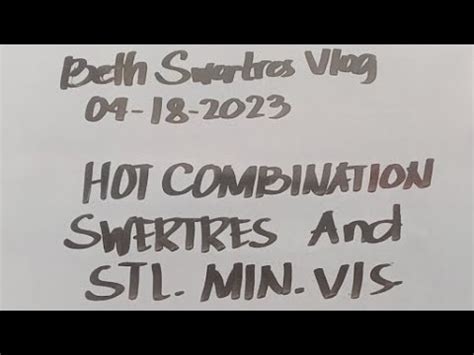 Beth Swertres Vlog
04-18-2023
HOT COMBINATION
SWERTRES And
STL. MIN. VIS